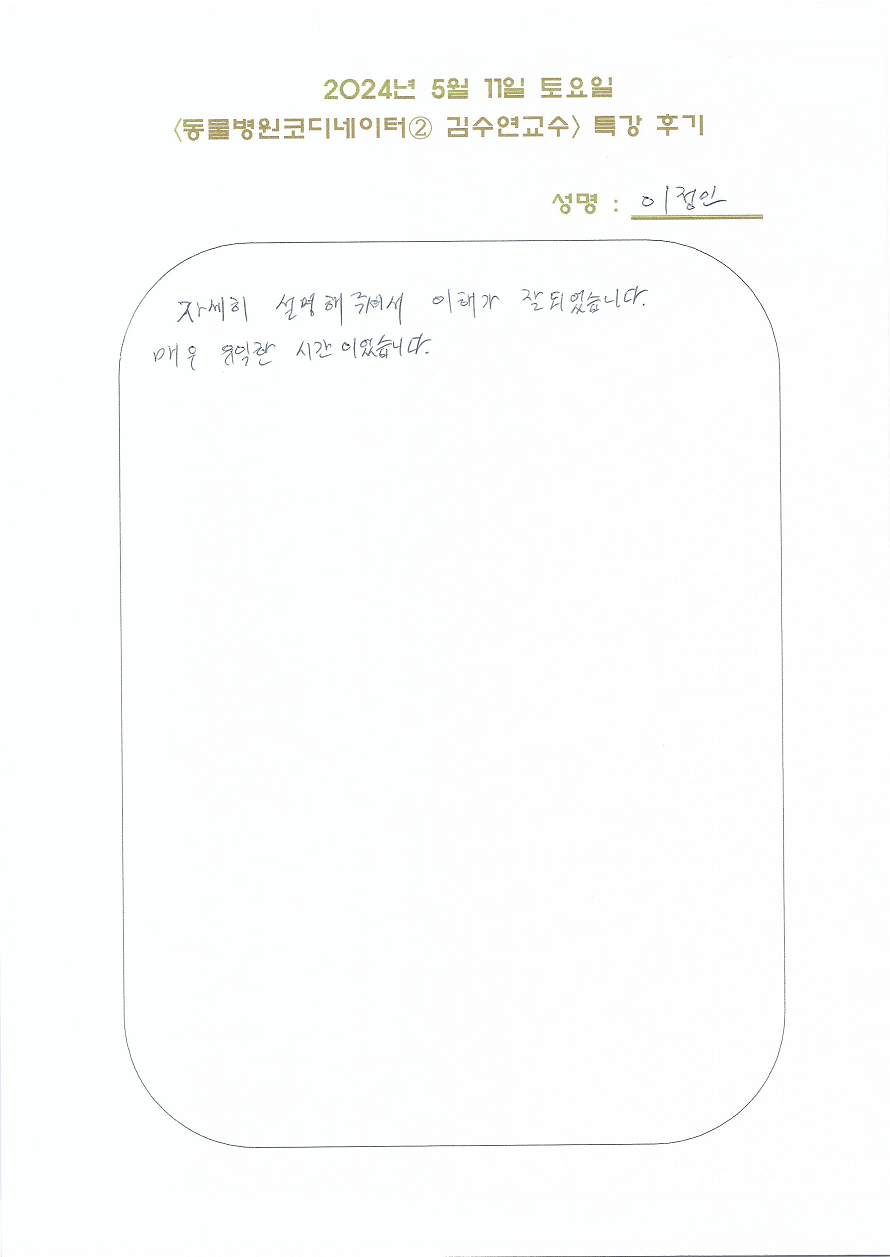 2024년 5월 11일 토요일
〈동물병원코디네이터② 김수연교수〉 특강 후기
성명 : 이정인
자세히 설명해주셔서 이해가 잘되었습니다.
매우 유익한 시간이었습니다.